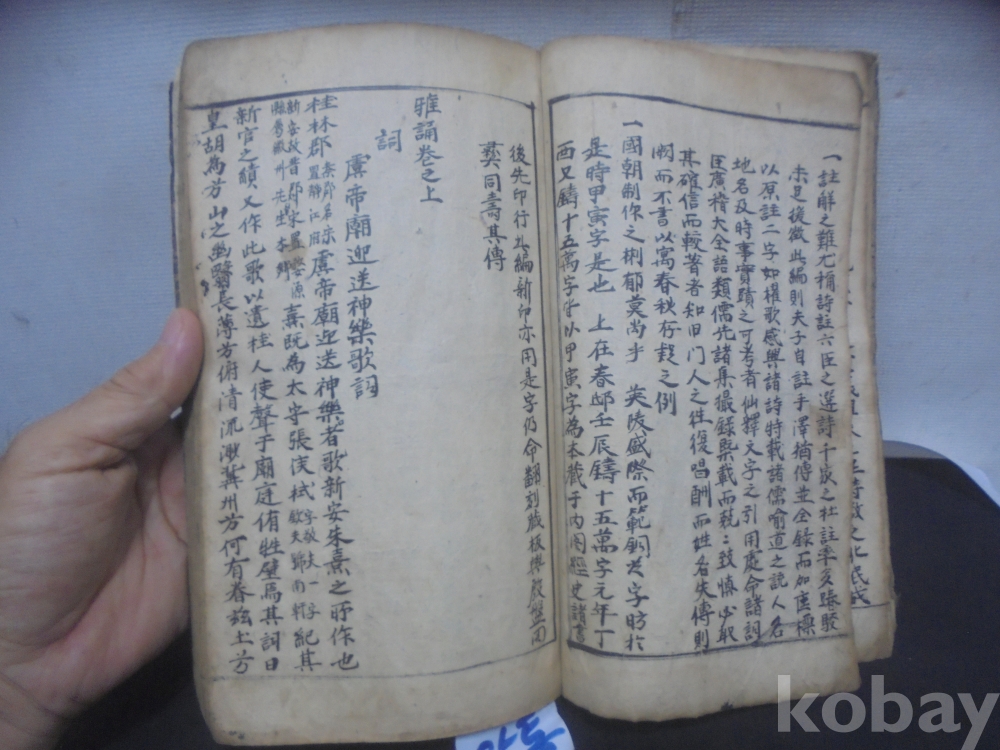 一註解之難尤稱詩註六臣之選詩千家之杜註率多踳駁
未足後徵此編則夫子自註手澤猶傳並全錄而加匡標
以原註二字如櫂歌感興諸詩特載諸儒喻道之說人名
地名及時事實蹟之可考者仙釋文字之引用處命諸詞
臣廣稽大全語類儒先諸集撮錄槩載而兢兢致愼必取
其確信而較著者知旧門人之往復唱酬而姓名失傳則
闕而不書以寓春秋存疑之例
一國朝制作之彬郁莫尚乎 英陵盛際而範銅爲字昉於
是時甲寅字是也 上在春邸壬辰鑄十五萬字元年丁
酉又鑄十五萬字皆以甲寅字爲本藏于內閣經史諸書
後先印行此編新印亦用是字仍命翻刻藏板與殷盤周
彛同壽其傳
雅誦卷之上
詞
虞帝廟迎送神樂歌詞
桂林郡 虞帝廟迎送神樂歌者歌新安朱熹之所作也
熹既為太守張侯栻 紀其
新宮之績又作此歌以遺桂人使聲于廟庭侑牲璧焉其詞曰
皇胡為兮山之幽翳長薄兮俯清流渺冀州兮何有眷玆土兮
kobay